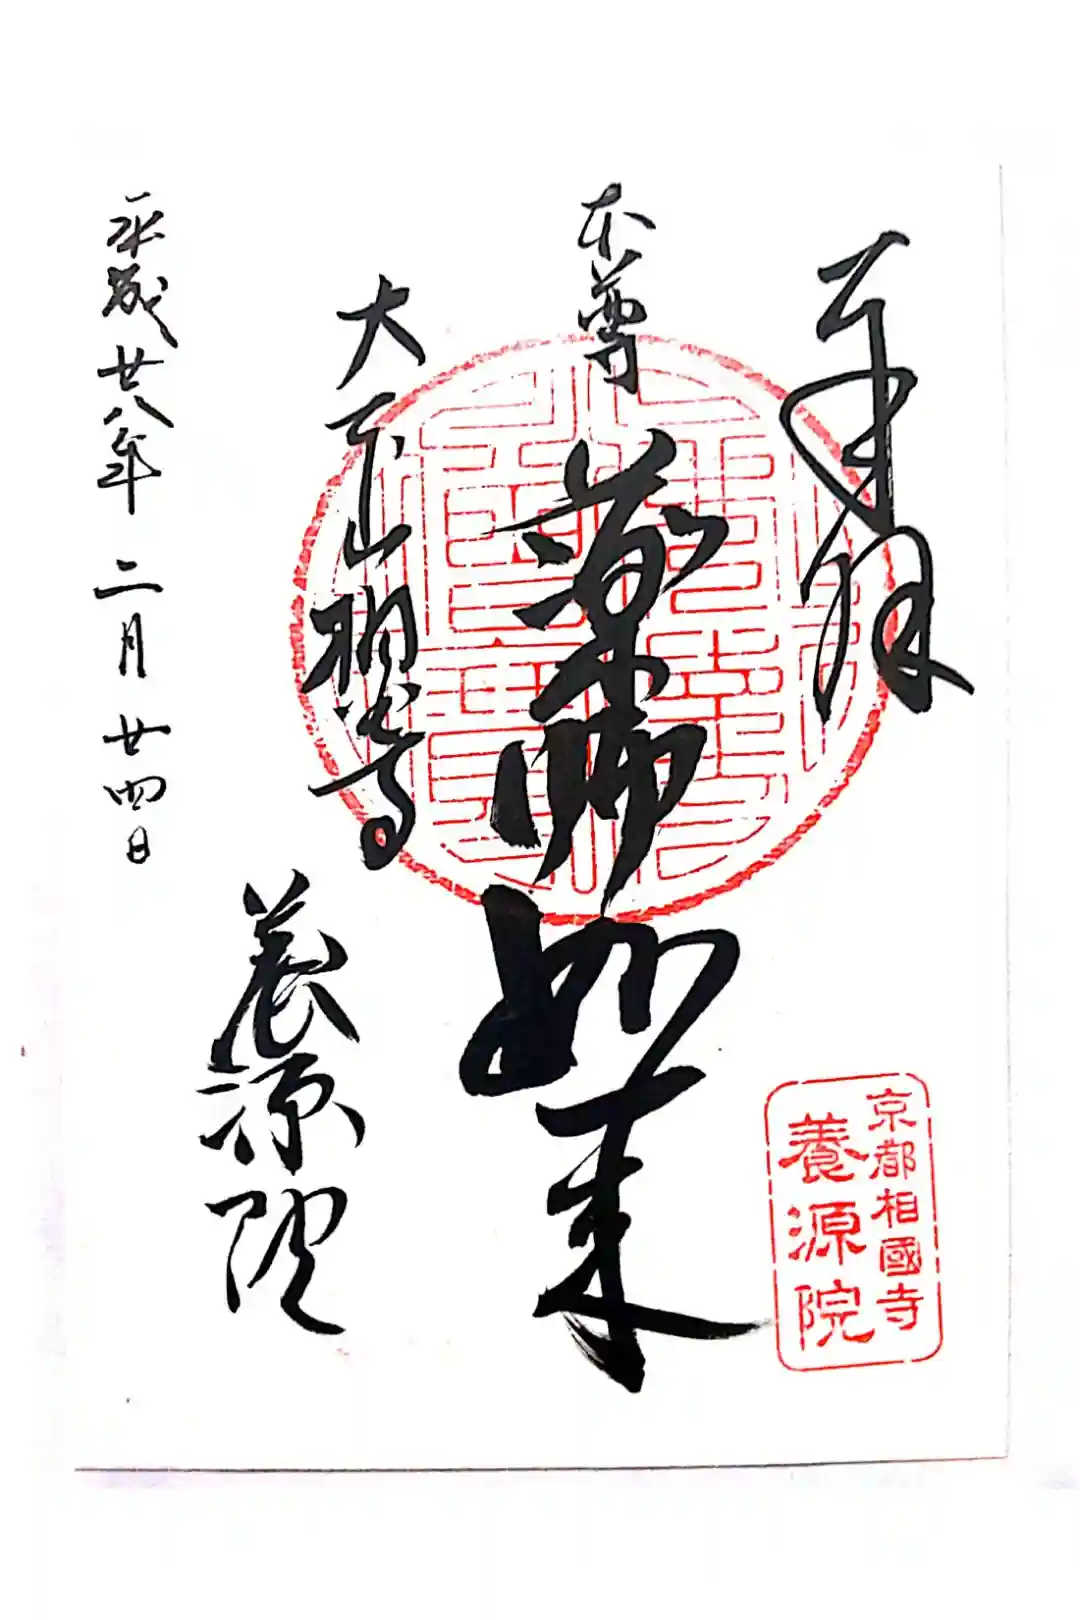 奉拝
本尊
薬師如来
大
平成廿八年 二月 廿四日
養源院
京都相國寺
養源院